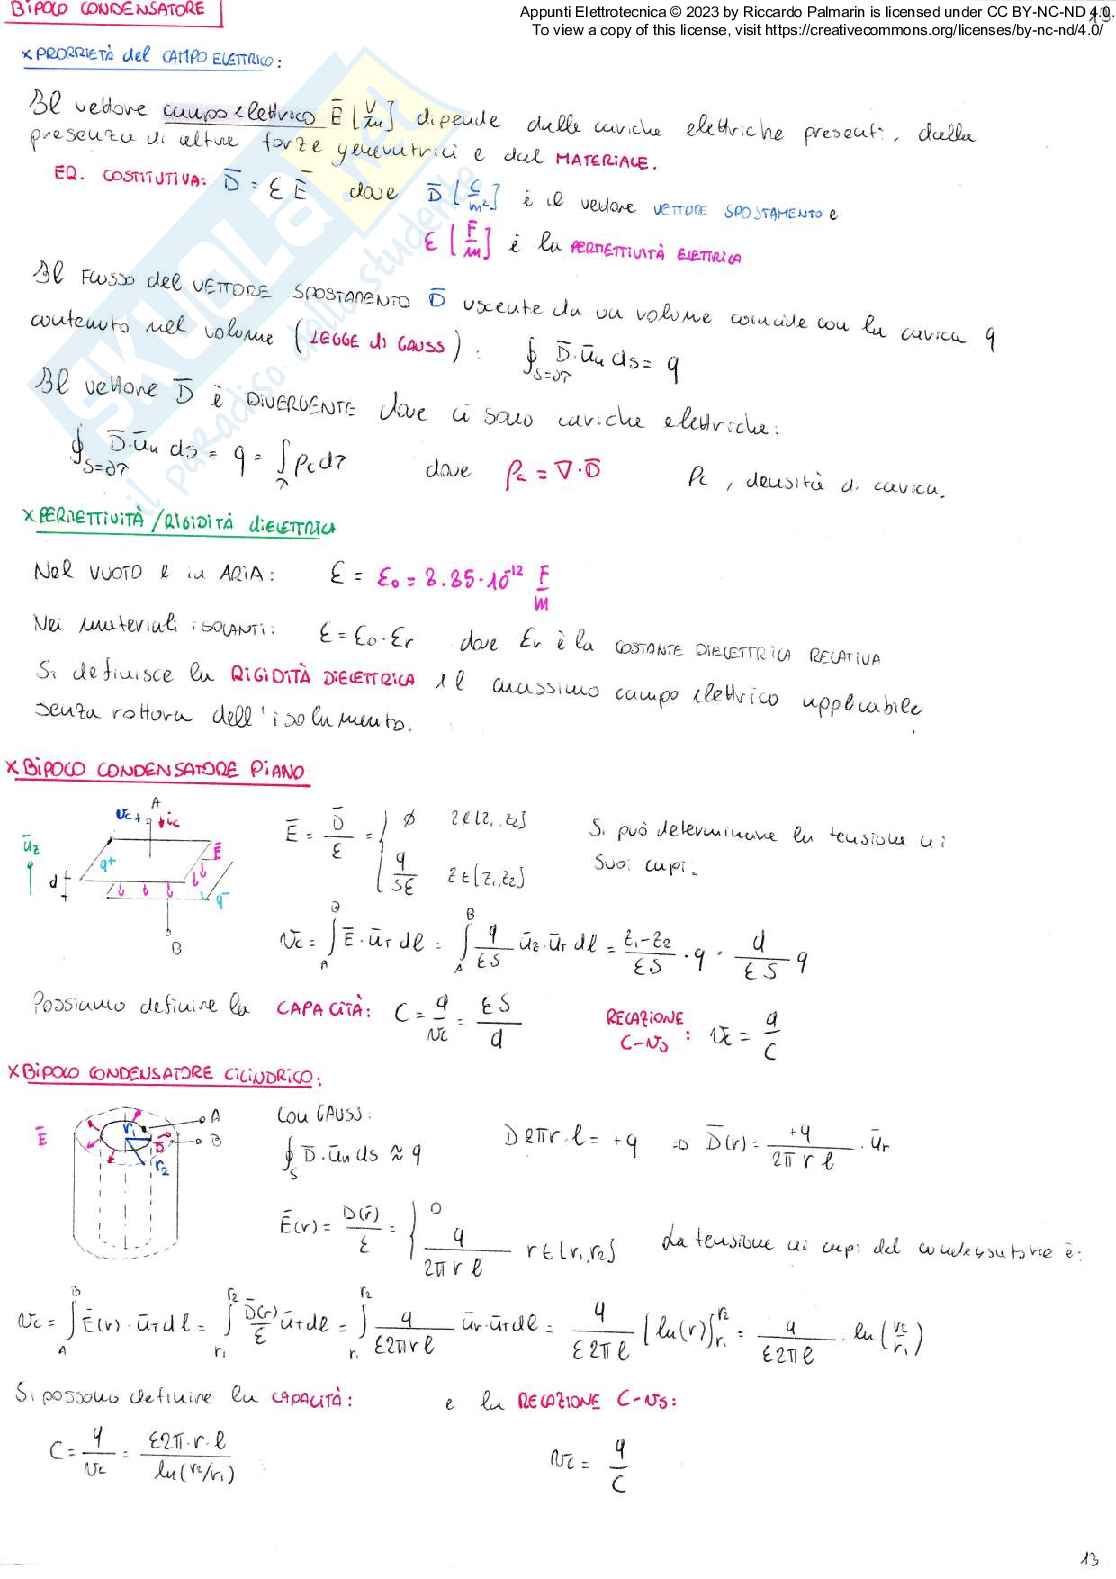 BIPOLO CONDENSATORE
Appunti Elettrotecnica © 2023 by Riccardo Palmarin is licensed under CC BY-NC-ND 4.0.
To view a copy of this license, visit https://creativecommons.org/licenses/by-nc-nd/4.0/
x PROPRIETÀ del CAMPO ELETTRICO:
Il vettore campo elettrico E̅ [V/m] dipende dalle cariche elettriche presenti, dalla
presenza di altre forze generatrici e dal MATERIALE.
EQ. COSTITUTIVA: D̅ = ε E̅ dove D̅ [C/m²] è il vettore VETTORE SPOSTAMENTO e
ε [F/m] è la PERMETTIVITÀ ELETTRICA
Il FLUSSO del VETTORE SPOSTAMENTO D̅ uscente da un volume coincide con la carica q
contenuta nel volume (LEGGE di GAUSS): ∮_{S=∂τ} D̅·u̅n ds = q
Il vettore D̅ è DIVERGENTE dove ci sono cariche elettriche:
∮_{S=∂τ} D̅·u̅n ds = q = ∫_τ ρc dτ dove ρc = ∇·D̅ ρc, densità di carica.
x PERMETTIVITÀ / RIGIDITÀ dIELETTRICA
Nel VUOTO e in ARIA: ε = ε0 = 8.85·10^-12 F/m
Nei materiali ISOLANTI: ε = ε0·εr dove εr è la COSTANTE DIELETTRICA RELATIVA
Si definisce la RIGIDITÀ DIELETTRICA il massimo campo elettrico applicabile
senza rottura dell'isolamento.
x BIPOLO CONDENSATORE PIANO
A
vc + ic
u̅z
q+ E̅
d
q-
B
E̅ = D̅/ε = { ∅ z∉[z1,z2]
q/Sε z∈[z1,z2]
Si può determinare la tensione ai
suoi capi.
vc = ∫_A^B E̅·u̅T dl = ∫_A^B q/εS u̅z·u̅T dl = (z1-z2)/εS · q = d/εS q
Possiamo definire la CAPACITÀ: C = q/vc = εS/d RELAZIONE C-vs: vc = q/C
x BIPOLO CONDENSATORE CILINDRICO:
E̅
r1
A
B
r2
Con GAUSS:
∮_S D̅·u̅n ds ≈ q D2πr·l = +q ⇒ D̅(r) = +q/2πrl · u̅r
E̅(r) = D(r̅)/ε = { 0
q/2πrl r∈[r1,r2] La tensione ai capi del condensatore è:
vc = ∫_A^B E̅(r)·u̅T dl = ∫_{r1}^{r2} D̅(r)/ε u̅T dl = ∫_{r1}^{r2} q/ε2πrl u̅r·u̅T dl = q/ε2πl [ln(r)]_{r1}^{r2} = q/ε2πl · ln(r2/r1)
Si possono definire la CAPACITÀ: e la RELAZIONE C-vs:
C = q/vc = ε2π·r·l/ln(r2/r1) vc = q/C
13
SKUOLA.net
il paradiso dello studente